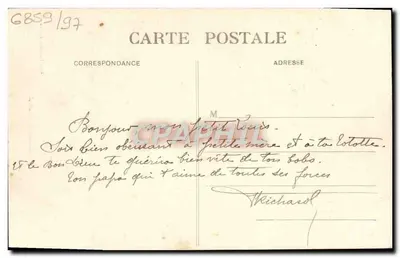 6859/97
CARTE POSTALE
CORRESPONDANCE
ADRESSE
M
Bonjour mon petit Louis.
Sois bien obeissant à petite mère et à ta Tototte
et le Bon Dieu te guérira bien vite de ton bobo.
Ton papa qui t'aime de toutes ses forces